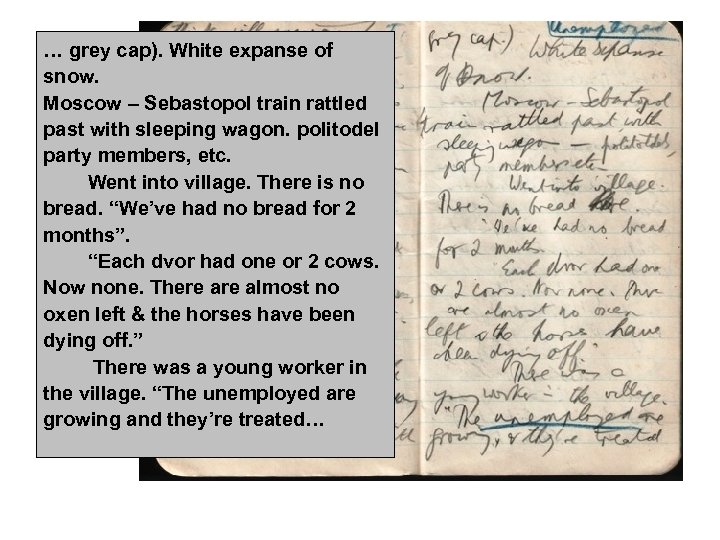 … grey cap). White expanse of
snow.
Moscow – Sebastopol train rattled
past with sleeping wagon. politodel
party members, etc.
Went into village. There is no
bread. “We’ve had no bread for 2
months”.
“Each dvor had one or 2 cows.
Now none. There are almost no
oxen left & the horses have been
dying off.”
There was a young worker in
the village. “The unemployed are
growing and they’re treated…
Unemployed
grey cap.) White expanse
of snow.
Moscow – Sebastopol
train rattled past with
sleeping wagon – politotdels,
party members etc
Went into village.
There is no bread
"We've had no bread
for 2 months
Each dvor had one
or 2 cows. Now none. There
are almost no oxen
left & the horses have
been dying off."
There was a
young worker in the village.
"The unemployed are
growing, & they're treated